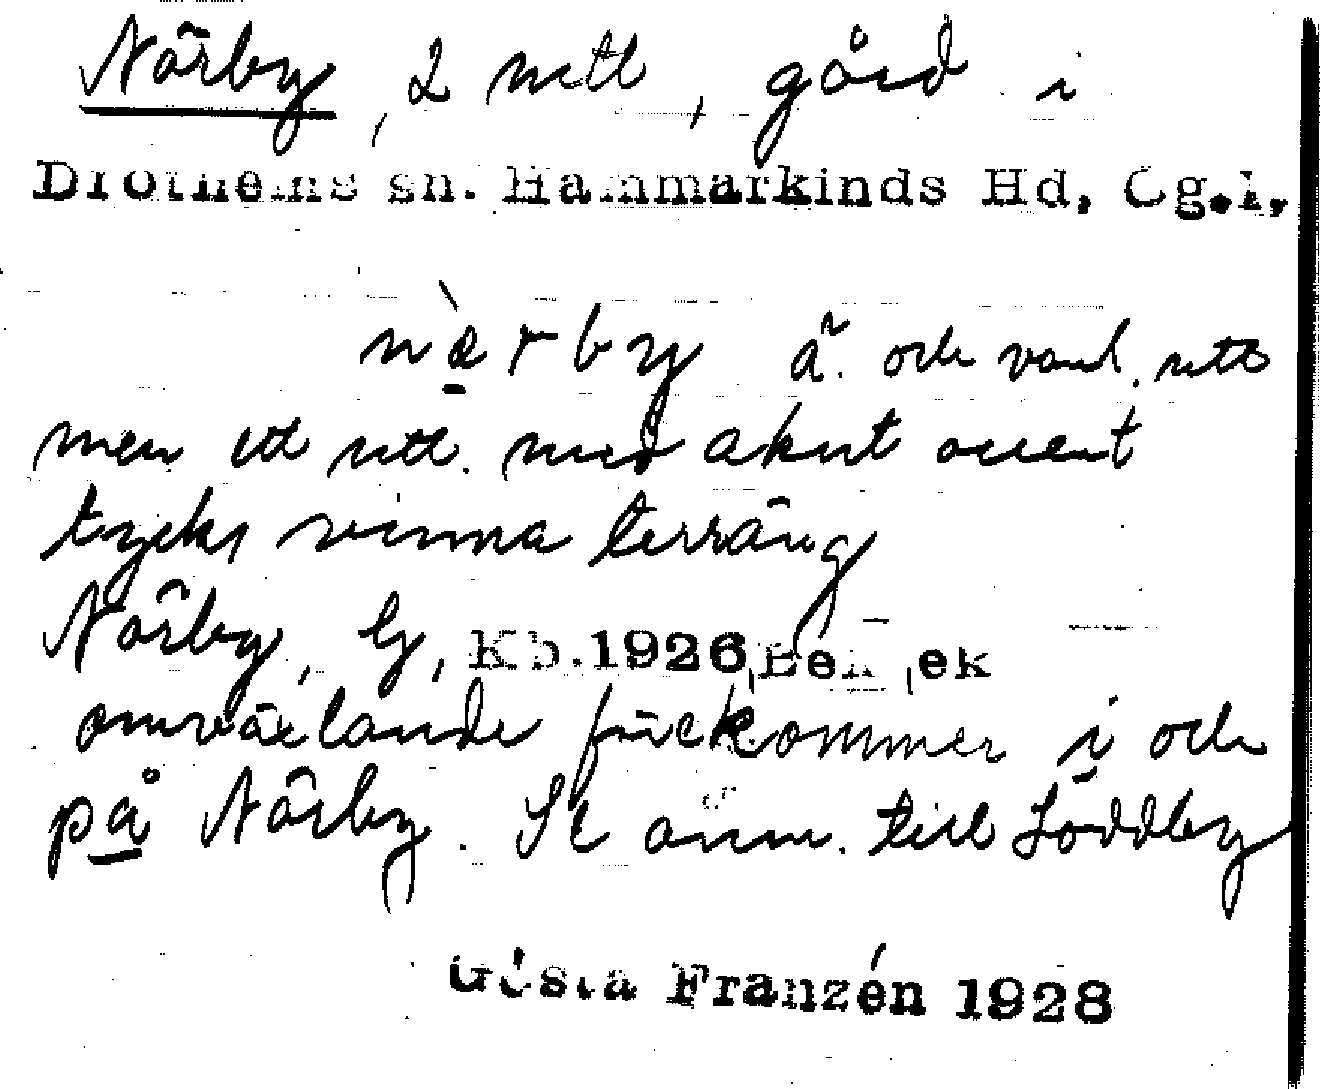 Närby, 2 mtl, gård i
Drothems sn. Hammarkinds Hd, Ög.l,
nærby ä. och vanl. utt
men ett utt. med akut accent
tycks vinna terräng
Närby, G, Kb.1926, Bek, ek
omväxlande förekommer i och
på Närby. Se anm. till Löddby
Gösta Franzén 1928